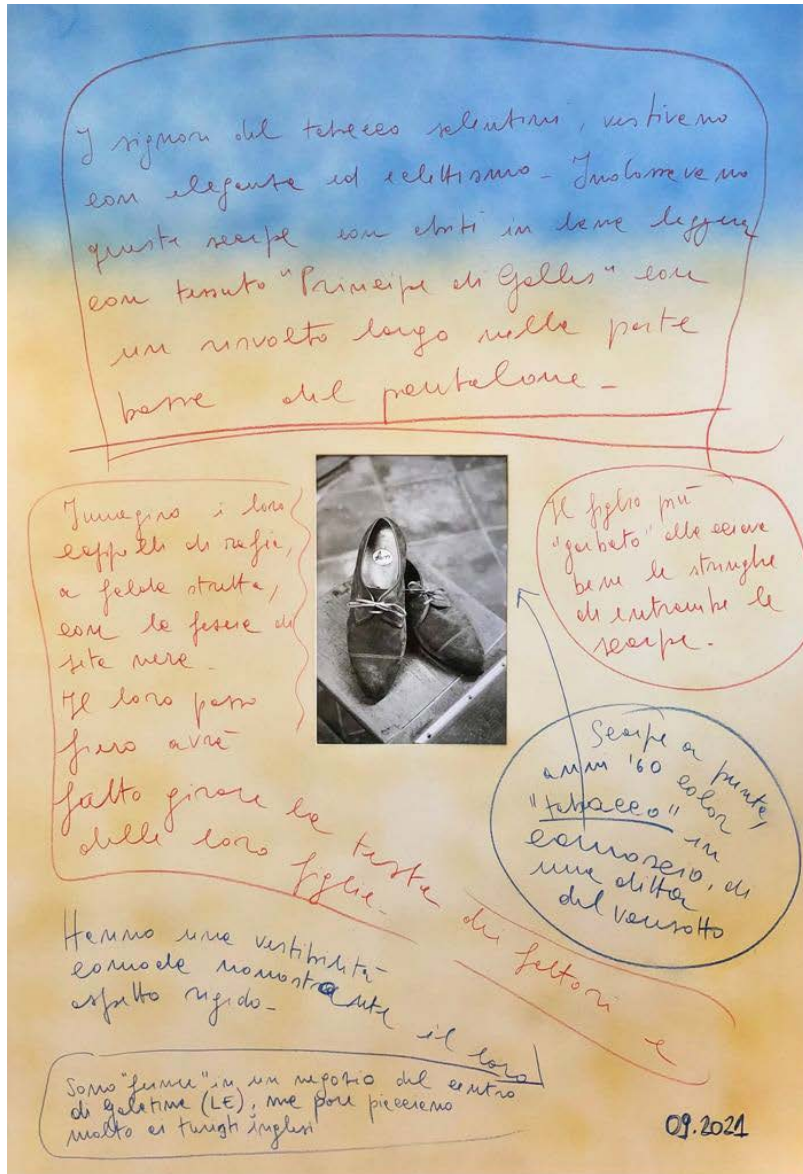 I signori del tabacco salentini, vestivano
con eleganza ed eclettismo - Indossavano
queste scarpe con abiti in lana leggera
con tessuto "Principe di Galles" con
un risvolto largo nella parte
bassa del pantalone -
Immagino i loro
cappelli di rafia,
a falda stretta,
con la fascia di
seta nera -
Il loro passo
fiero avrà
fatto girare la testa dei fattori e
delle loro figlie -
Il figlio più
"garbato" allacciava
bene le stringhe
di entrambe le
scarpe -
Scarpe a punta,
anni '60 color
"tabacco" in
camoscio, di
una ditta
del
Hanno una vestibilità
comoda nonostante il loro
aspetto rigido -
Sono "ferme" in un negozio del centro
di Galatina (LE), ma pare piacciano
molto ai turisti inglesi
09.2021